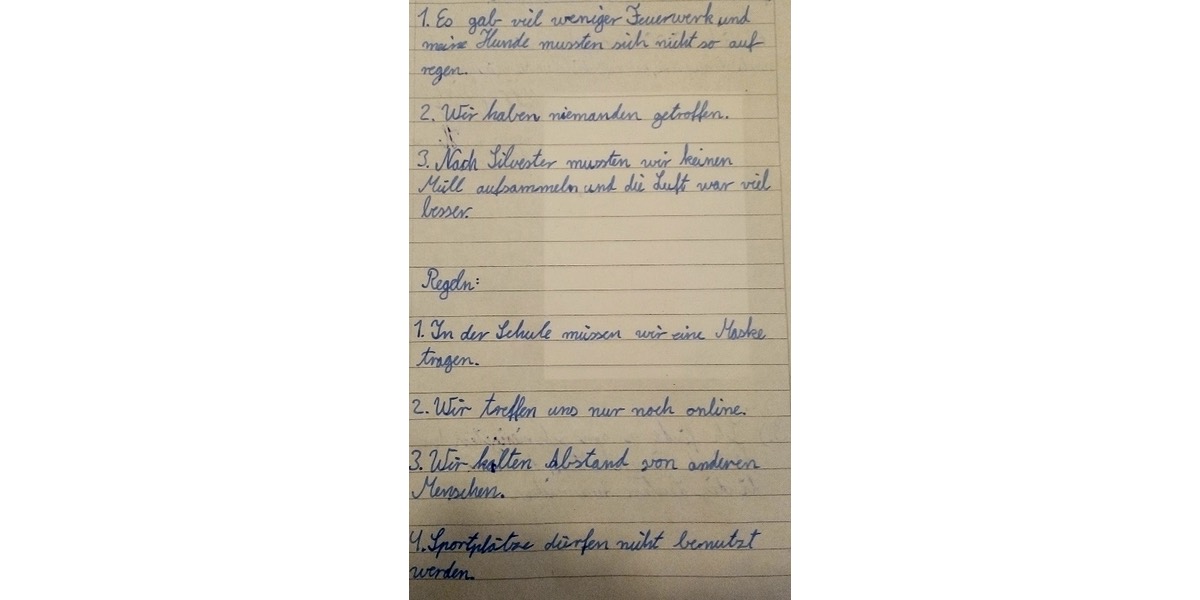 1. Es gab viel weniger Feuerwerk und
meine Hunde mussten sich nicht so auf
regen.
2. Wir haben niemanden getroffen.
3. Nach Silvester mussten wir keinen
Müll aufsammeln und die Luft war viel
besser.
Regeln:
1. In der Schule müssen wir eine Maske
tragen.
2. Wir treffen uns nur noch online.
3. Wir halten Abstand von anderen
Menschen.
4. Sportplätze dürfen nicht benutzt
werden.